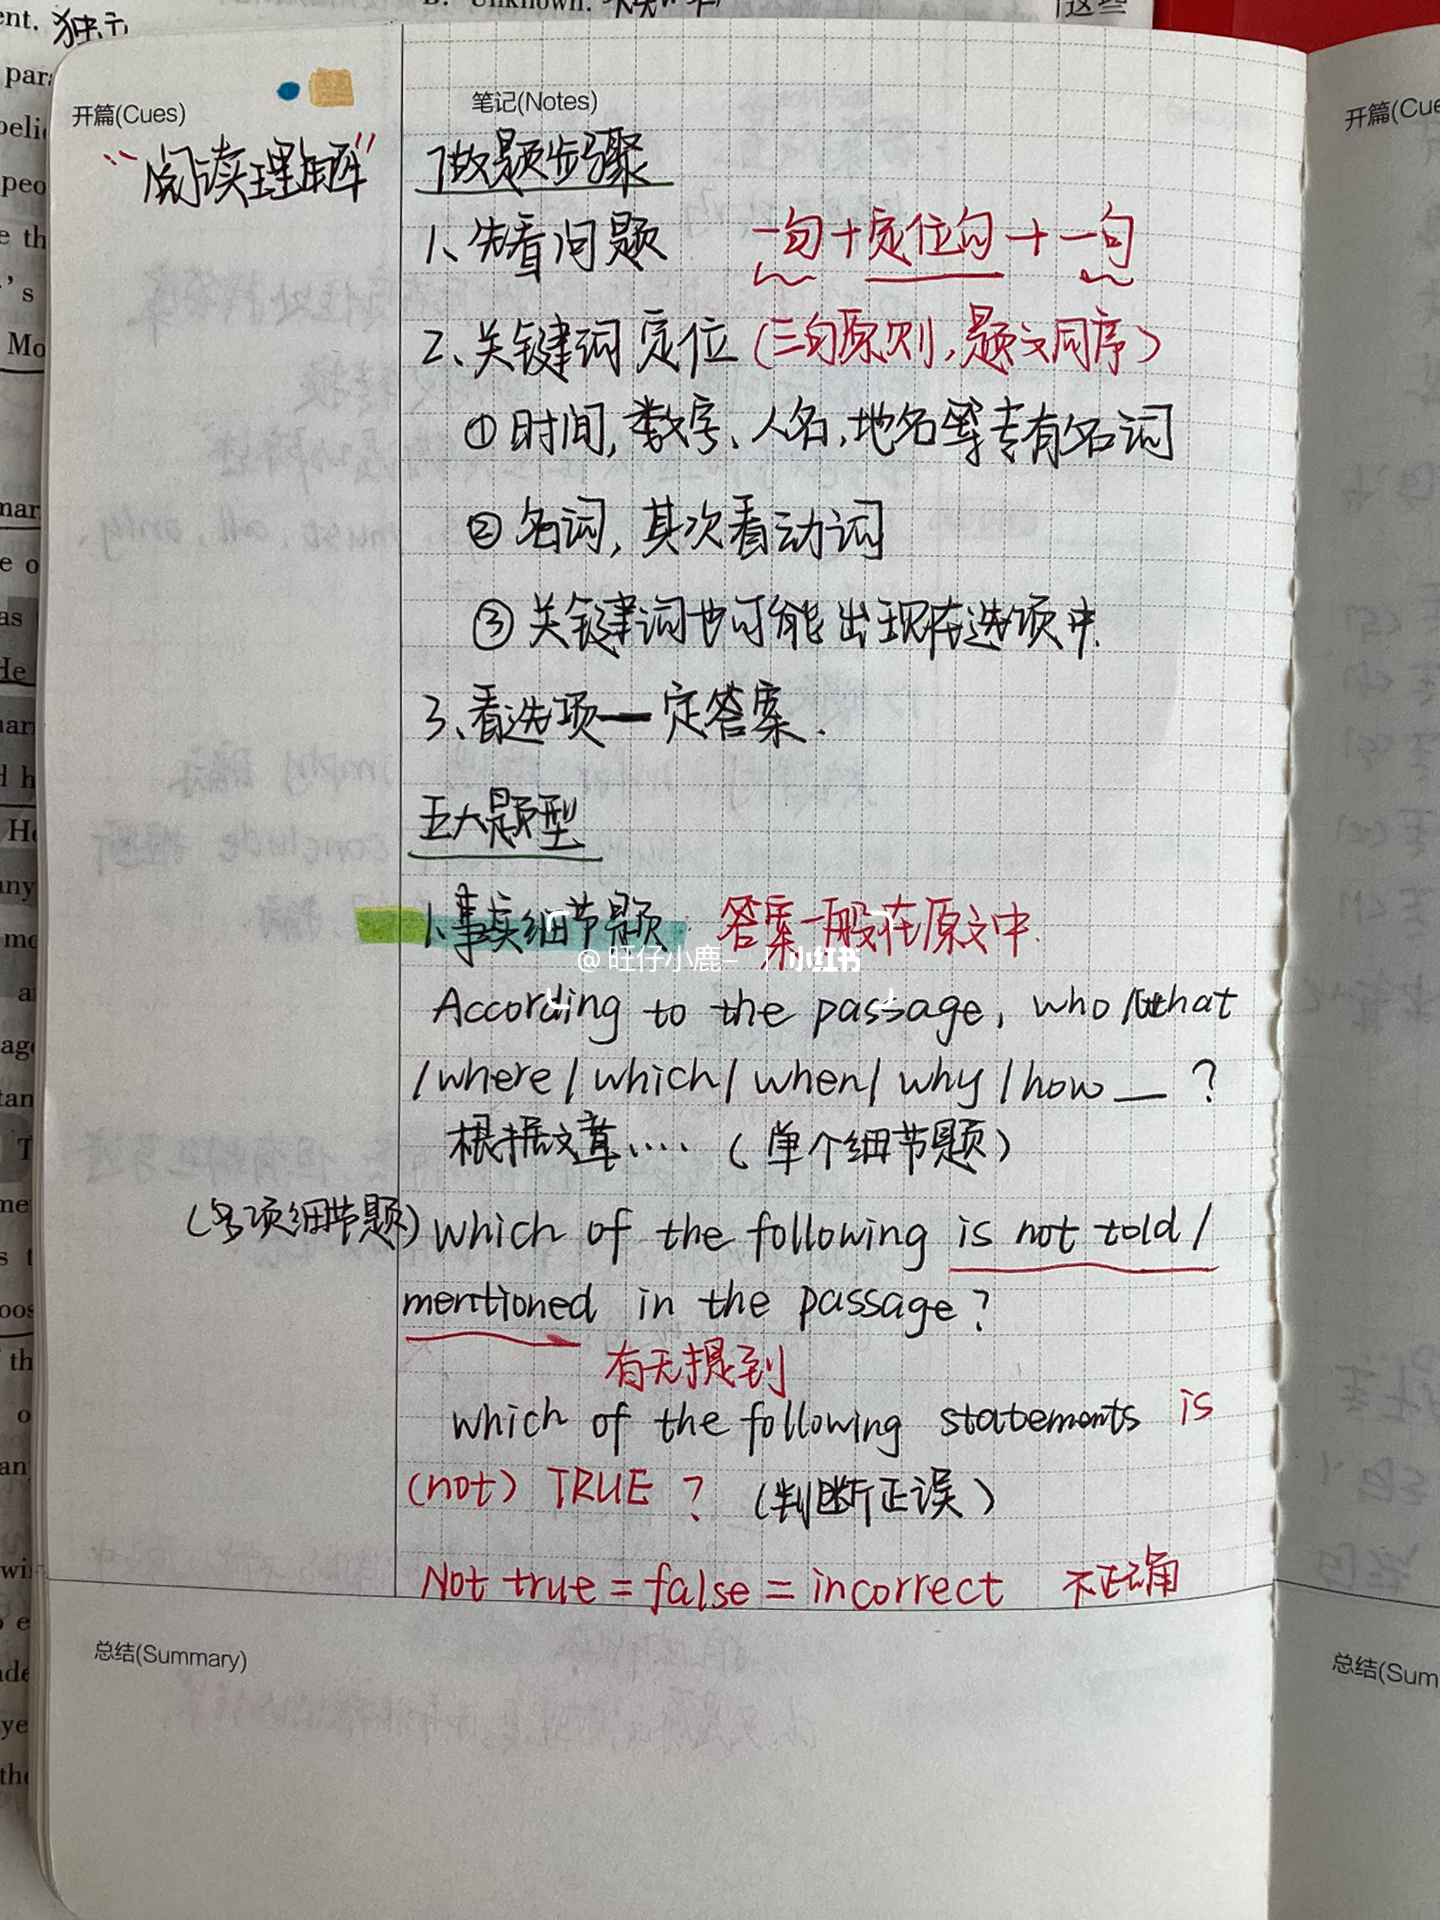 开篇(Cues)
笔记(Notes)
“阅读理解”
做题步骤
1、先看问题 一句+定位句+一句
2、关键词定位(三句原则,题文同序)
①时间,数字、人名,地名等专有名词
②名词,其次看动词
③关键词也可能出现在选项中.
3、看选项一定答案.
五大题型
1、事实细节题 答案一般在原文中.
@旺仔小鹿- 小红书
According to the passage, who/what
/where/which/when/why/how__?
根据文章.... (单个细节题)
(多项细节题) which of the following is not told/
mentioned in the passage?
有无提到
which of the following statements is
(not) TRUE? (判断正误)
Not true = false = incorrect 不正确
总结(Summary)